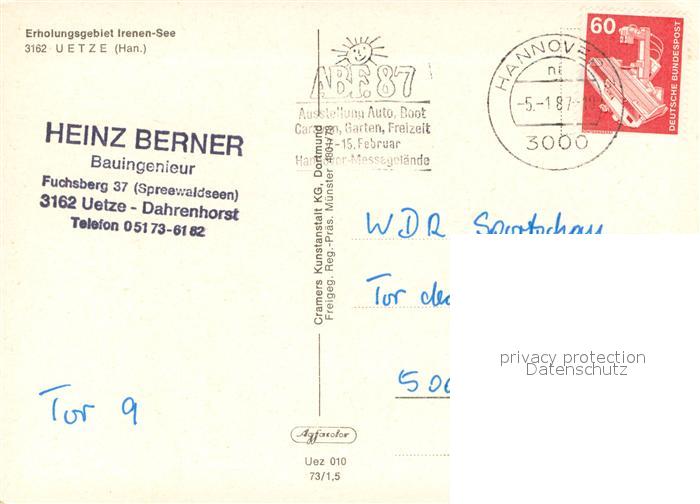 Erholungsgebiet Irenen-See
3162 UETZE (Han.)
HEINZ BERNER
Bauingenieur
Fuchsberg 37 (Spreewaldseen)
3162 Uetze - Dahrenhorst
Telefon 05173-6182
Tor 9
Cramers Kunstanstalt KG, Dortmund
Freigeg. Reg.-Präs. Münster 4801/78
Agfacolor
Uez 010
73/1,5
ABF. 87
Ausstellung Auto, Boot
Caravan, Garten, Freizeit
-15. Februar
Hannover-Messegelände
HANNOVE
-5.-1 87-
3000
60
DEUTSCHE BUNDESPOST
WDR Sportschau
Tor de
500
privacy protection
Datenschutz